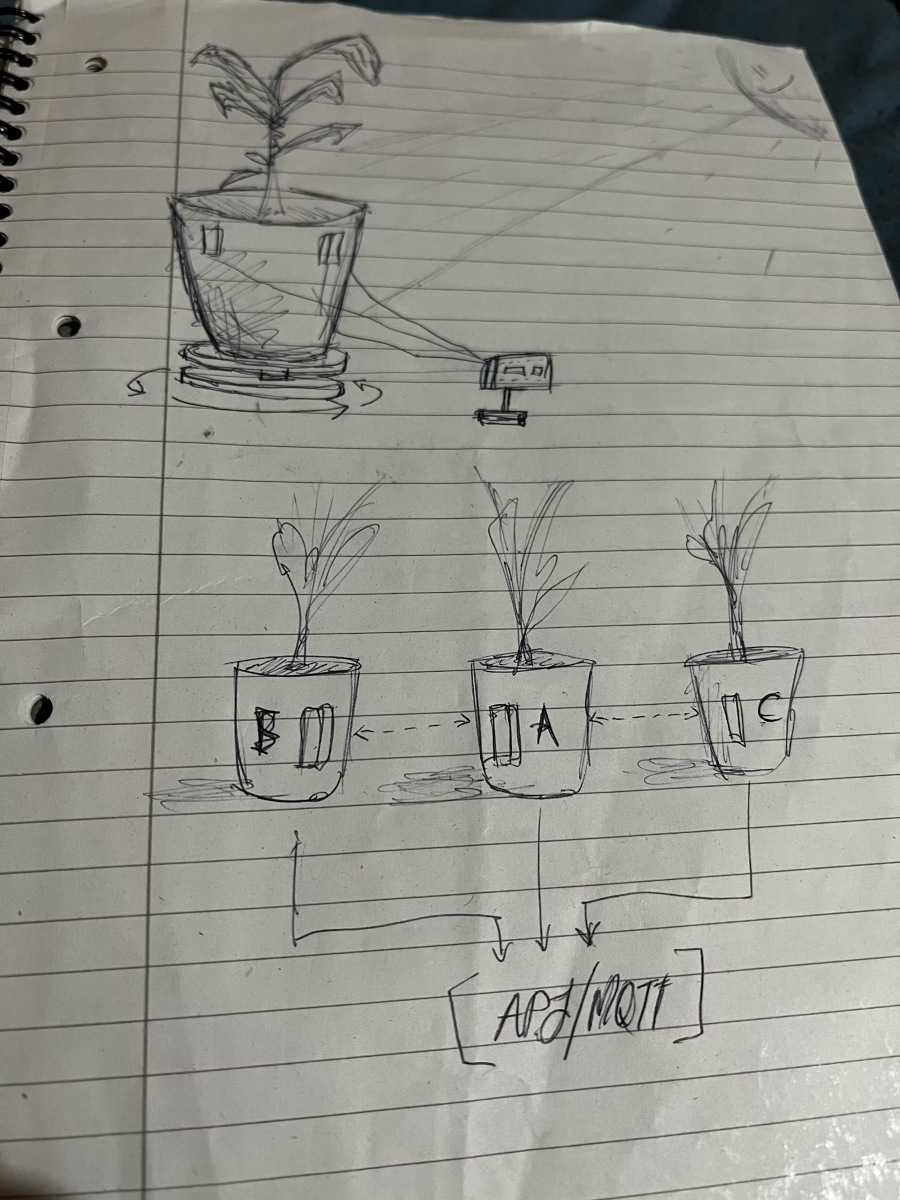 B A C
[API/MQTT]